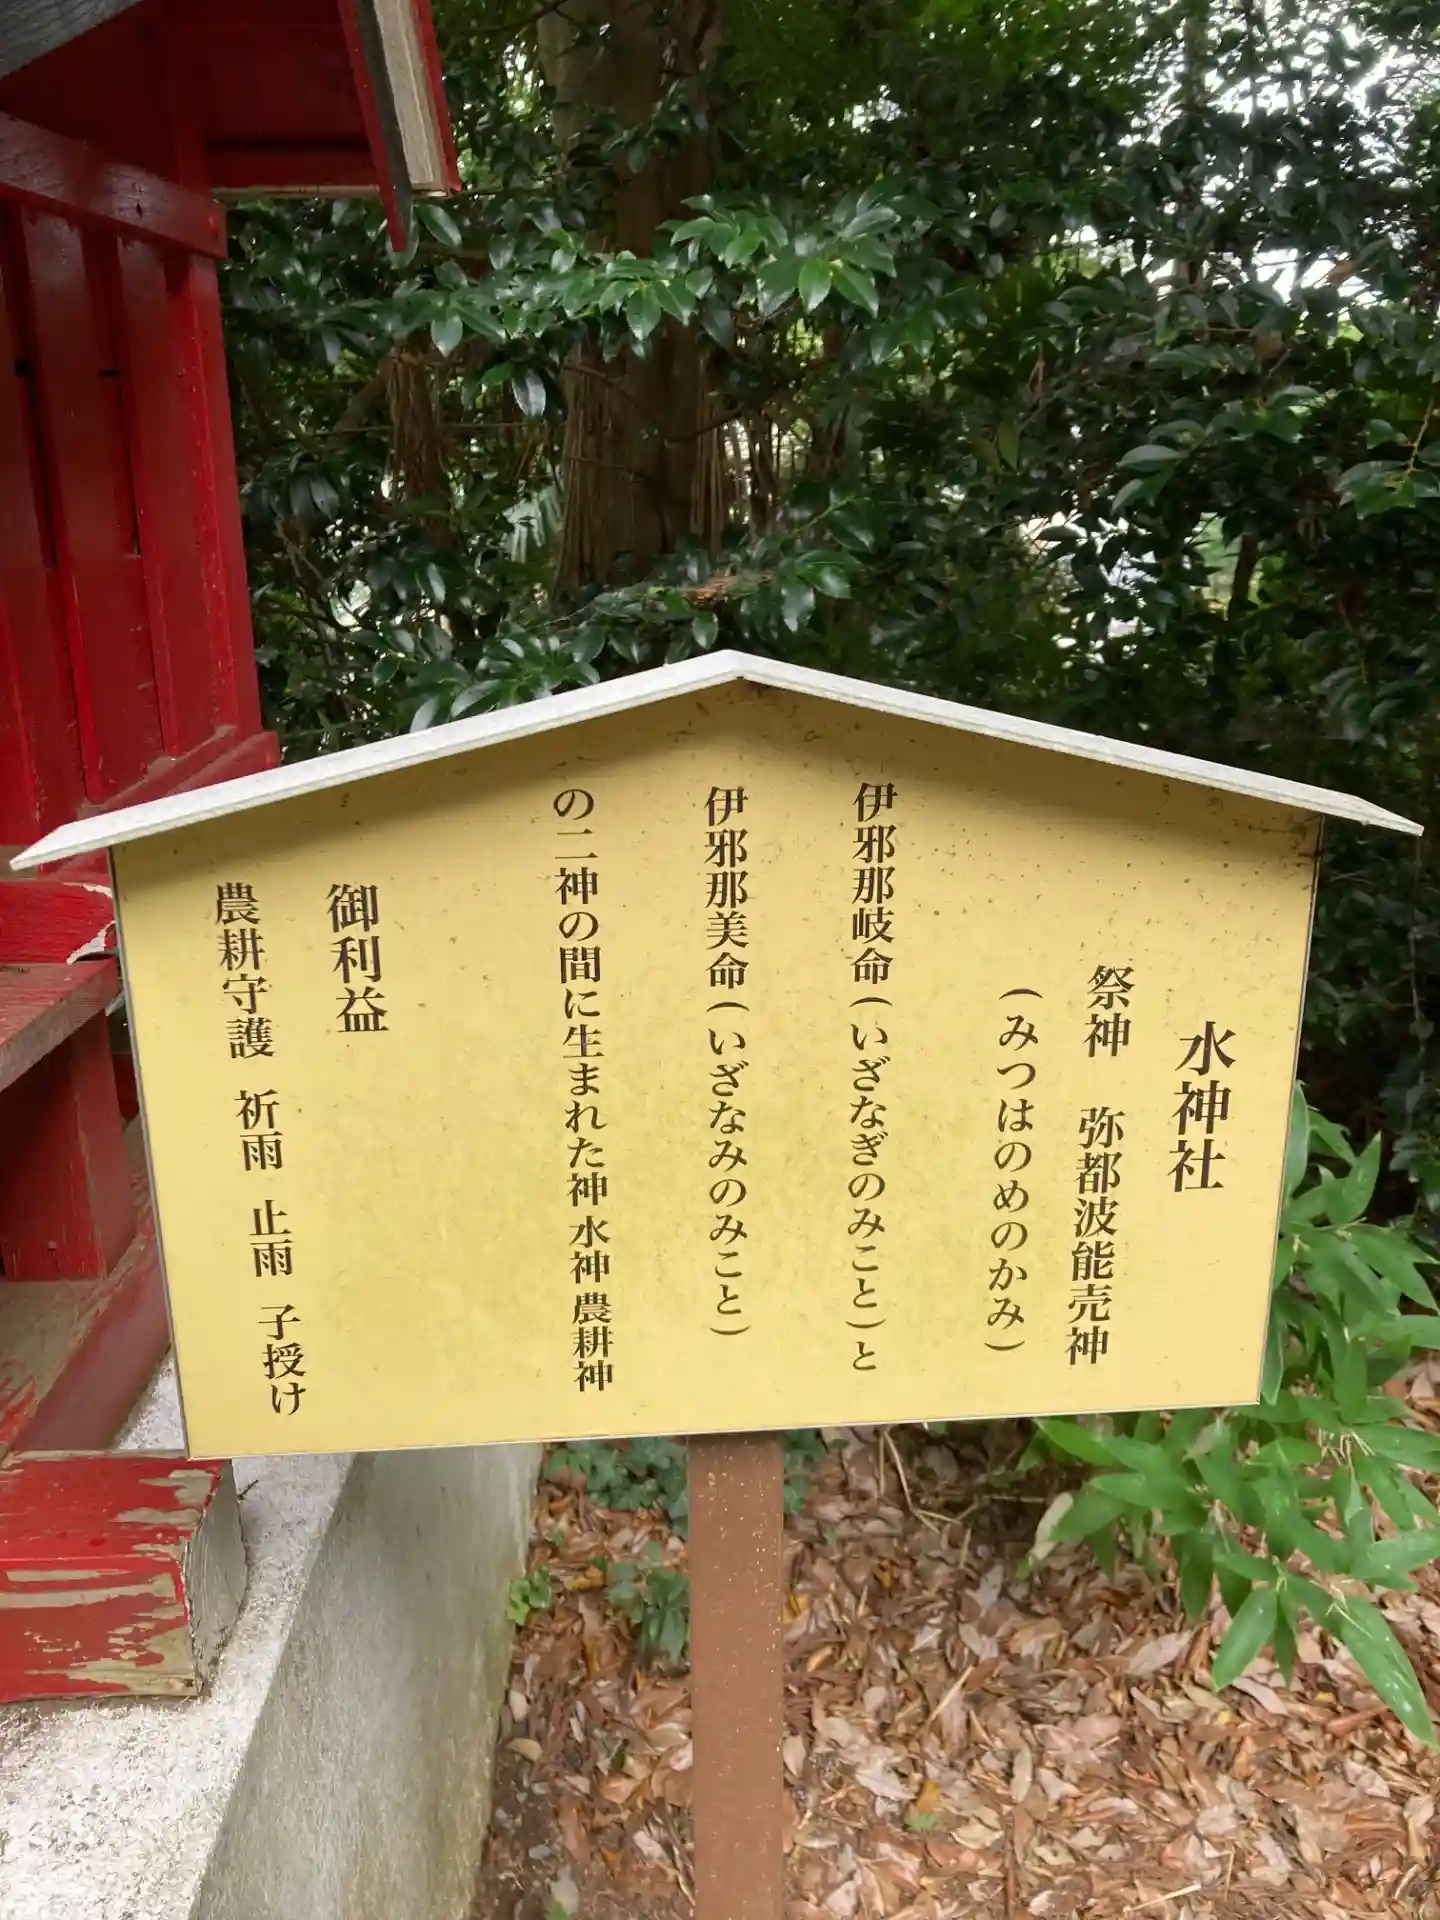 水神社
祭神　弥都波能売神
（みつはのめのかみ）
伊邪那岐命（いざなぎのみこと）と
伊邪那美命（いざなみのみこと）
の二神の間に生まれた神 水神 農耕神
御利益
農耕守護　祈雨　止雨　子授け